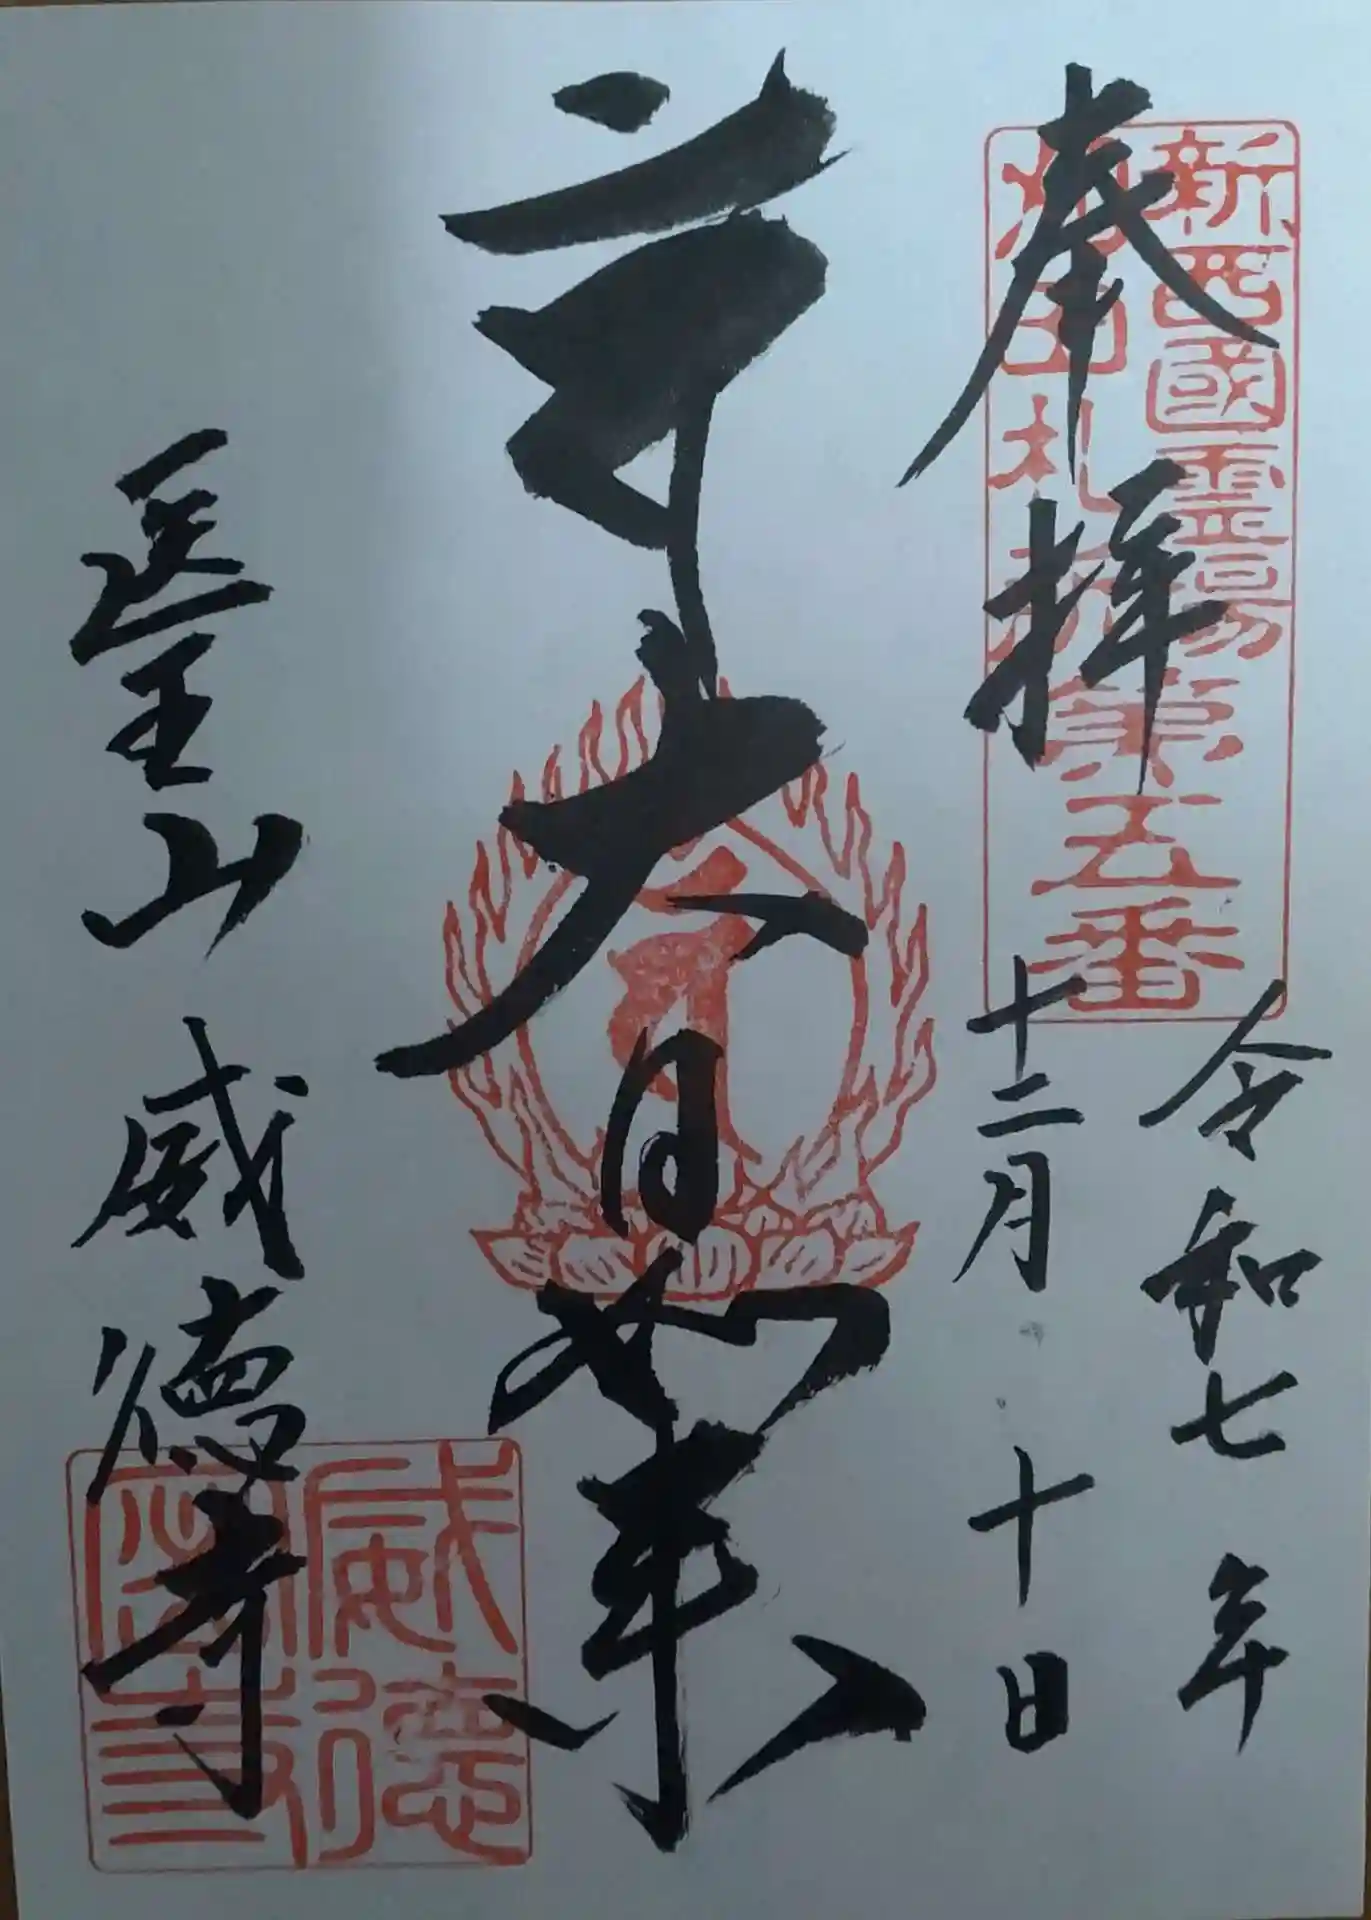 奉拝
新西國霊場
札所第五番
令和七年
十二月十日
大日如来
医王山威徳寺
威徳
密寺